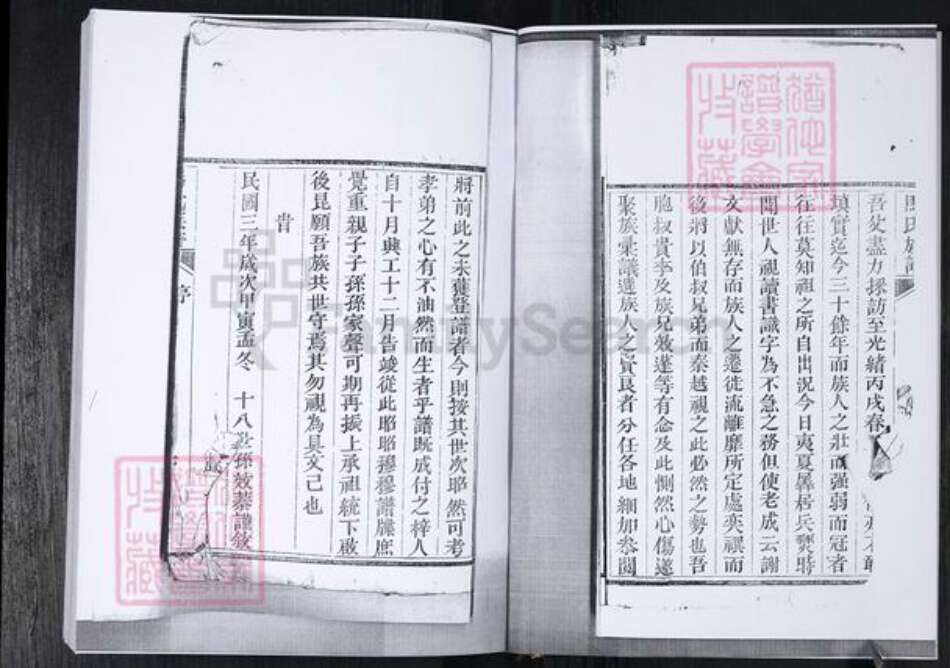 吾父盡力採訪至光緒丙戌春
填實迄今三十餘年而族人之壯而强弱而冠者
往往莫知祖之所自出況今日夷夏羼居兵燹時
聞世人視讀書識字為不急之務但使老成云謝
文獻無存而族人之遷徙流離靡所定處奕禩而
後將以伯叔兄弟而秦越視之此必然之勢也吾
胞叔貴孚及族兄效蓬等有念及此惻然心傷遂
聚族彙議選族人之賢良者分任各地細加叅閱
將前此之未獲登譜者今則按其世次昭然可考
孝弟之心有不油然而生者乎譜既成付之梓人
自十月興工十二月告竣從此昭昭穆穆譜牒庶
覺重親子子孫孫家聲可期再振上承祖統下啟
後昆願吾族共世守焉其勿視為具文已也
旹
民國三年歲次甲寅孟冬 十八世孫效蓁謹敘
序
FamilySearch